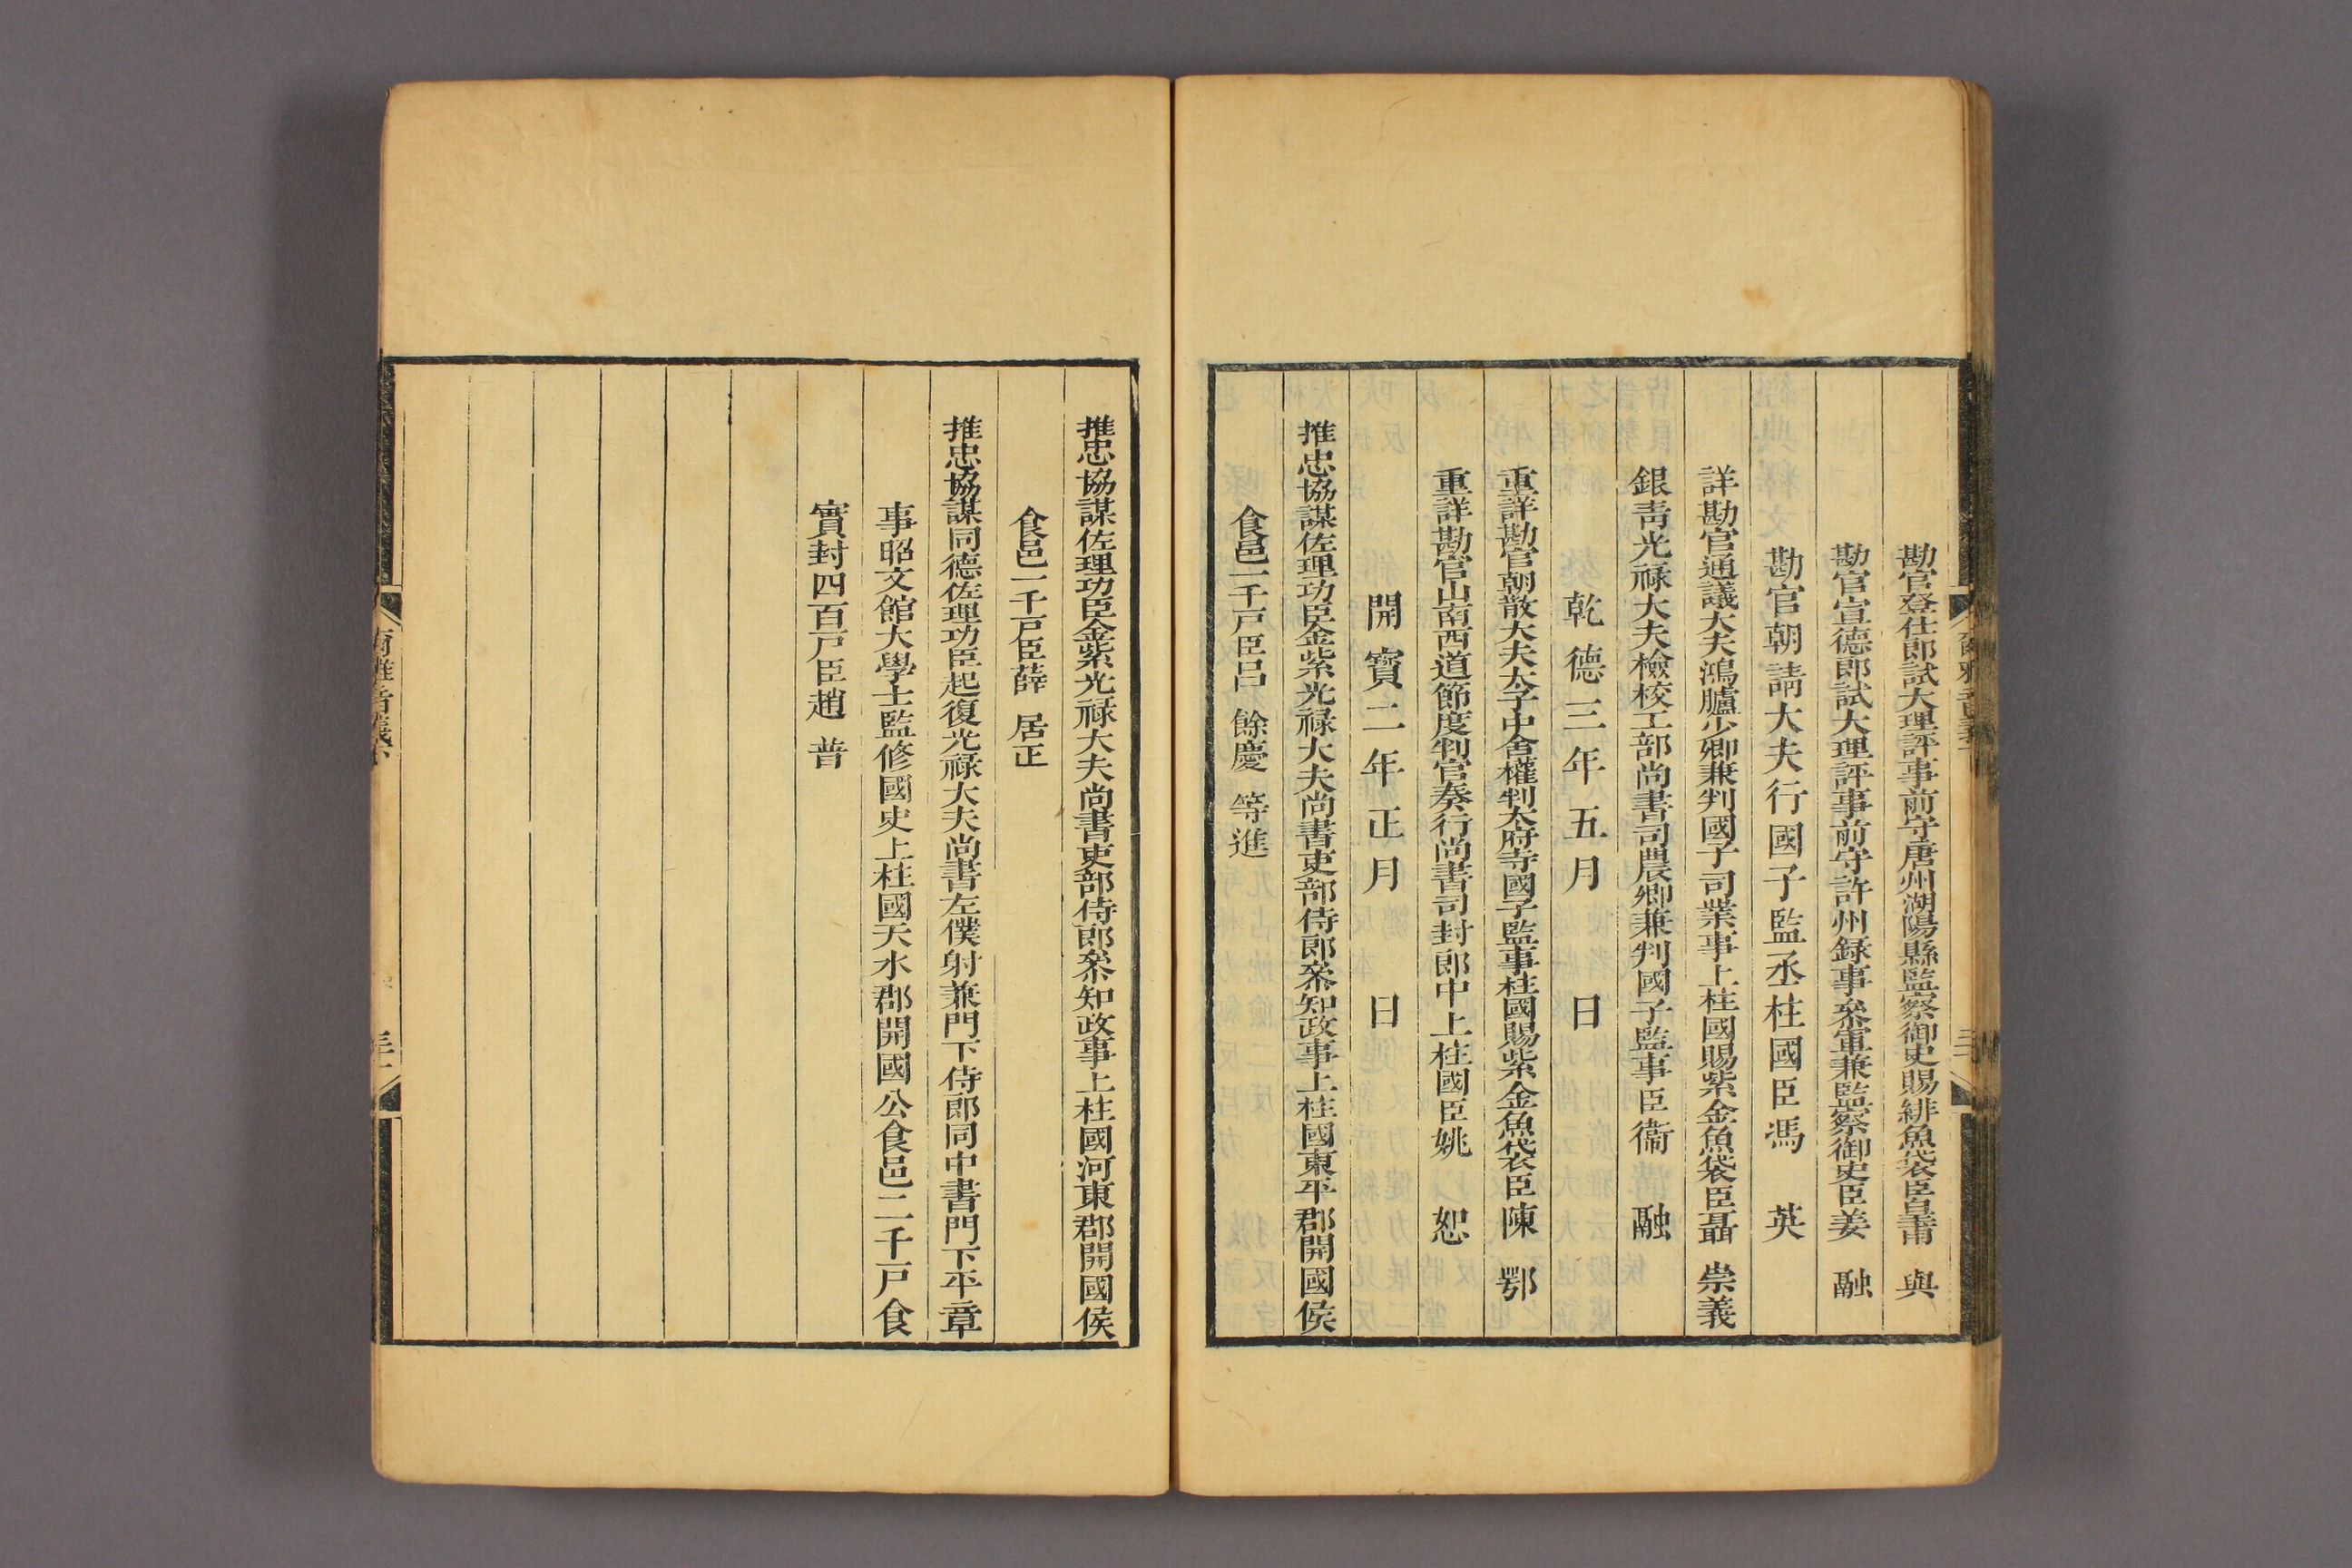 勘官登仕郎試大理評事前守唐州湖陽縣監察御史賜緋魚袋臣皇甫 與
勘官宣德郎試大理評事前守許州錄事叅軍兼監察御史臣姜 融
勘官朝請大夫行國子監丞柱國臣馮 英
詳勘官通議大夫鴻臚少卿兼判國子司業事上柱國賜紫金魚袋臣聶 崇義
銀青光祿大夫檢校工部尚書司農卿兼判國子監事臣衞 融
乾德三年五月 日
重詳勘官朝散大夫太子中舍權判太府寺國子監事柱國賜紫金魚袋臣陳 鄂
重詳勘官山南西道節度判官奏行尚書司封郎中上柱國臣姚 恕
開寶二年正月 日
推忠協謀佐理功臣金紫光祿大夫尚書吏部侍郎叅知政事上柱國東平郡開國侯
食邑一千戶臣呂 餘慶 等進
推忠協謀佐理功臣金紫光祿大夫尚書吏部侍郎叅知政事上柱國河東郡開國侯
食邑一千戶臣薛 居正
推忠協謀同德佐理功臣起復光祿大夫尚書左僕射兼門下侍郎同中書門下平章
事昭文館大學士監修國史上柱國天水郡開國公食邑二千戶食
實封四百戶臣趙 普